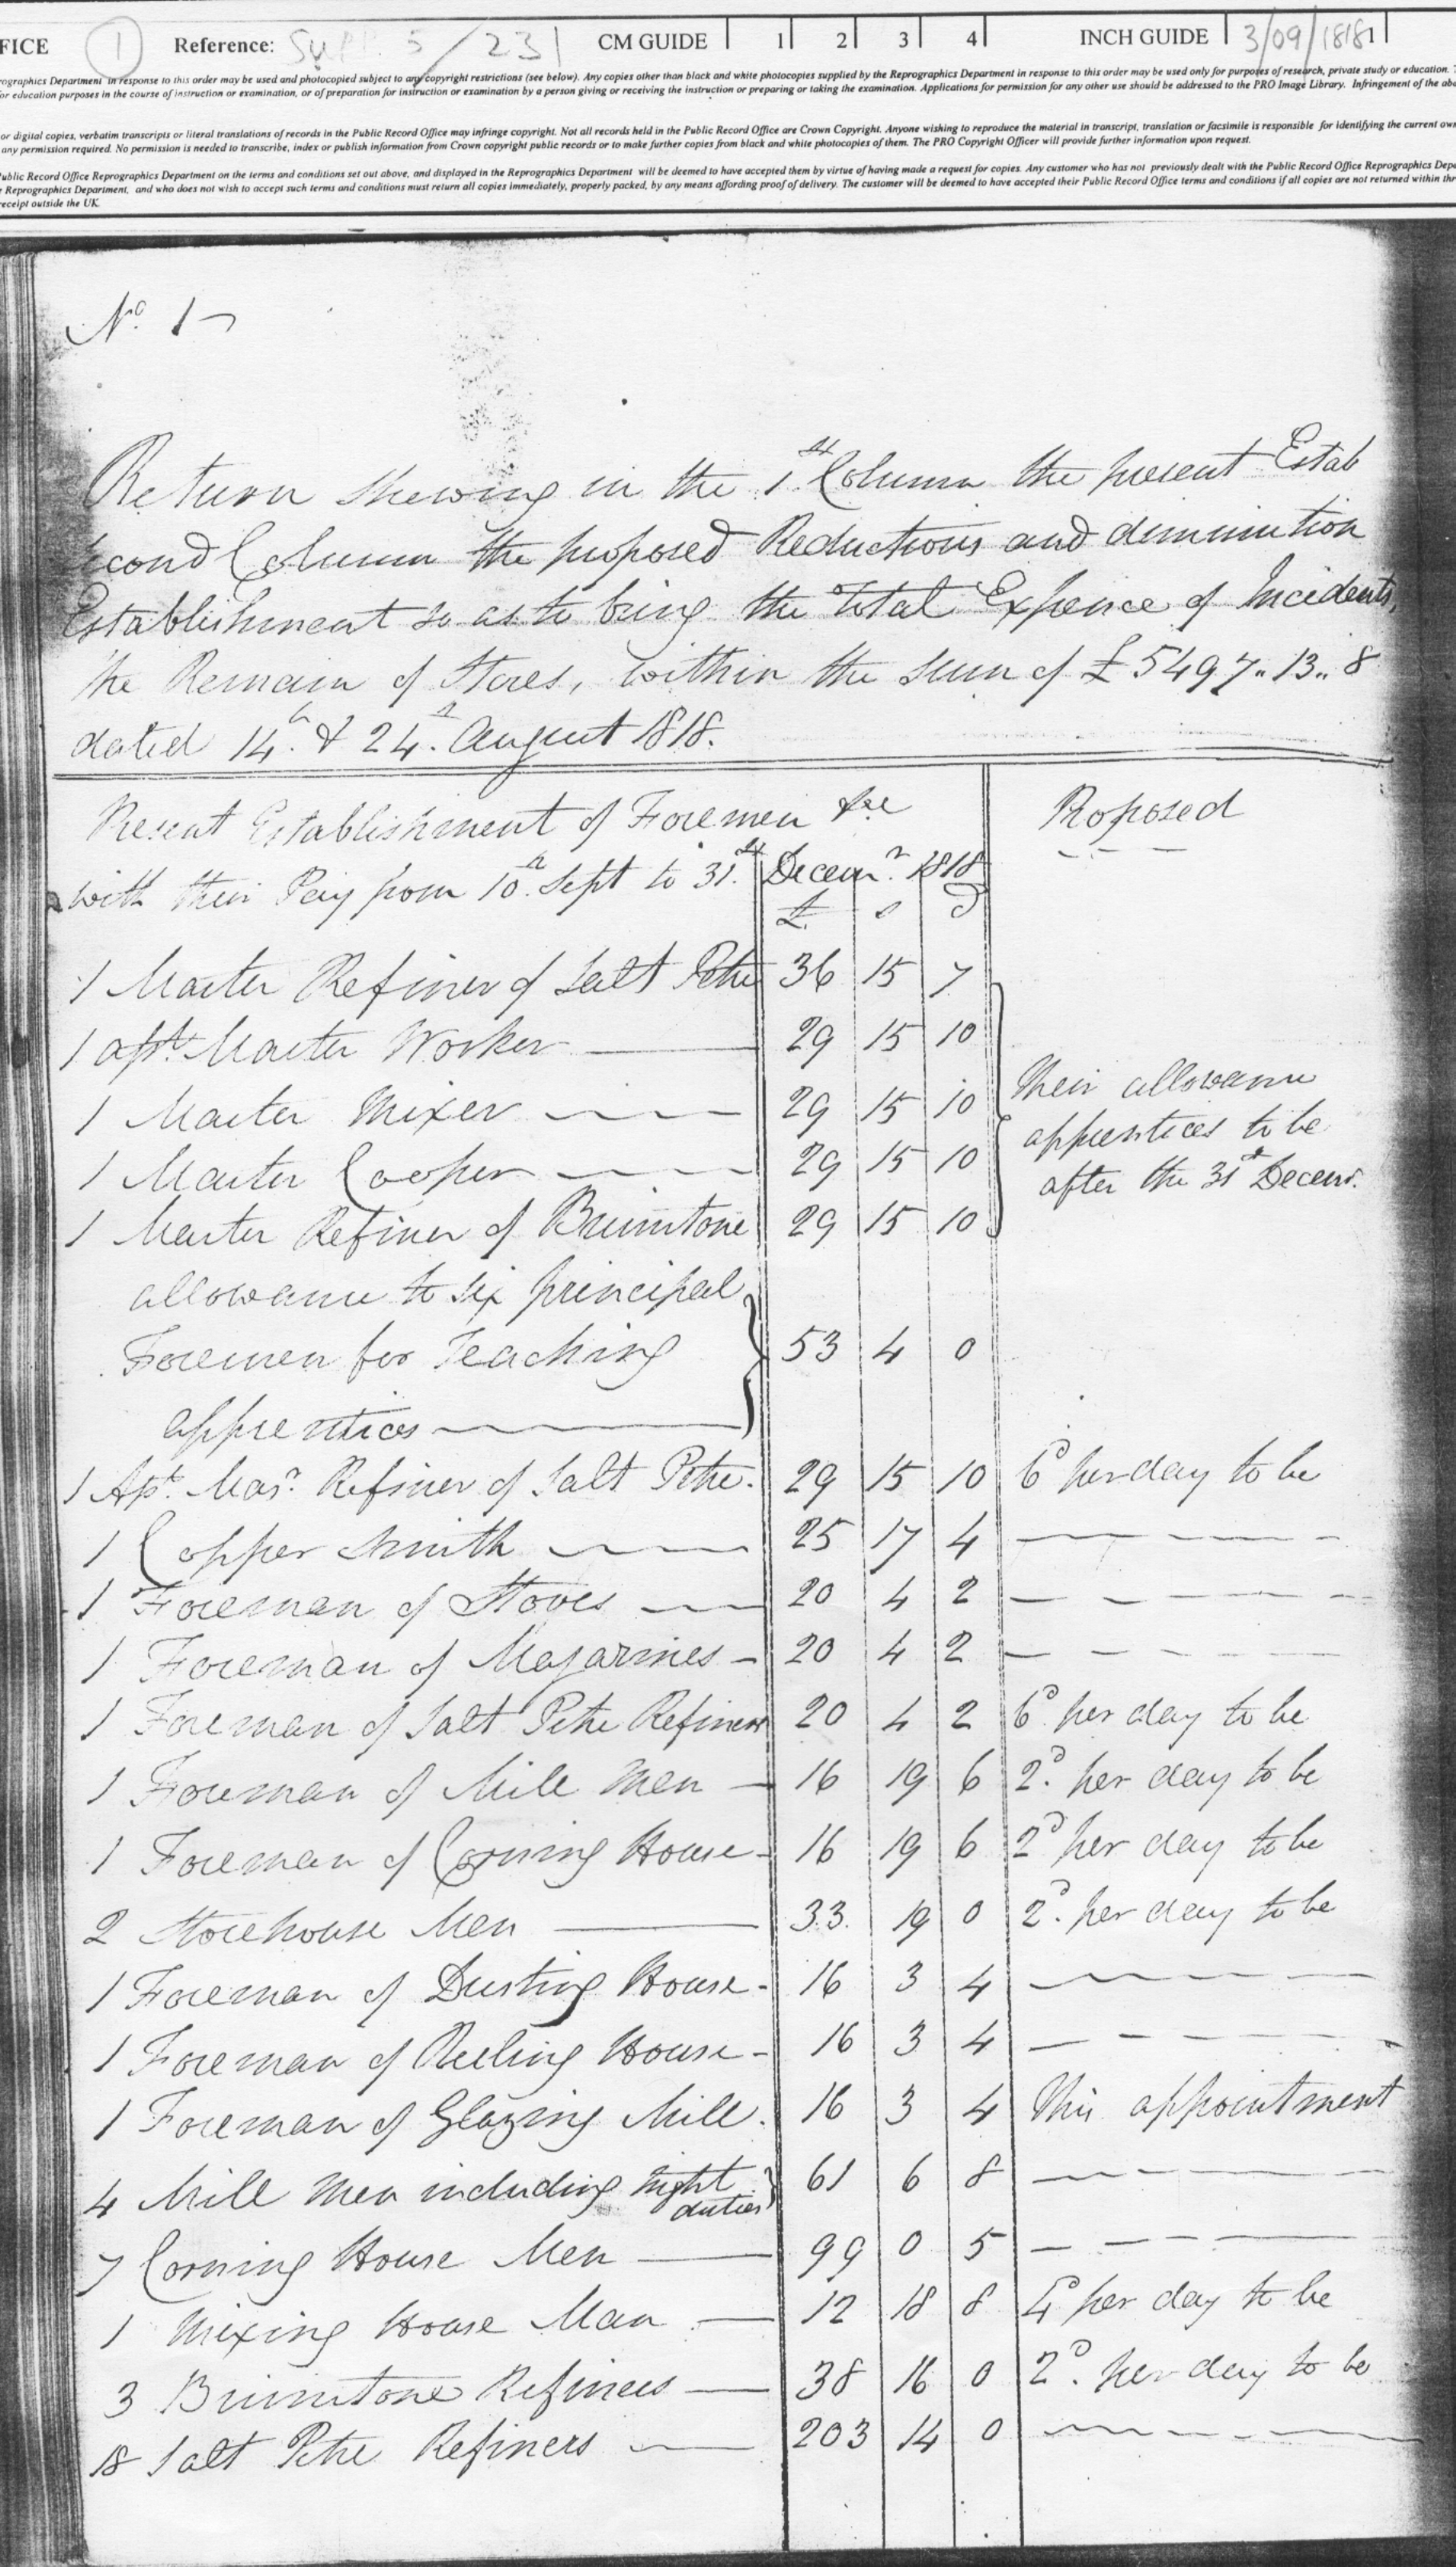 FICE
1
Reference: SUPP. 5/231
CM GUIDE 1 2 3 4
INCH GUIDE 1
3/09/1818
rographics Department in response to this order may be used and photocopied subject to any copyright restrictions (see below). Any copies other than black and white photocopies supplied by the Reprographics Department in response to this order may be used only for purposes of research, private study or education.
or education purposes in the course of instruction or examination, or of preparation for instruction or examination by a person giving or receiving the instruction or preparing or taking the examination. Applications for permission for any other use should be addressed to the PRO Image Library. Infringement of the abo
or digital copies, verbatim transcripts or literal translations of records in the Public Record Office may infringe copyright. Not all records held in the Public Record Office are Crown Copyright. Anyone wishing to reproduce the material in transcript, translation or facsimile is responsible for identifying the current own
any permission required. No permission is needed to transcribe, index or publish information from Crown copyright public records or to make further copies from black and white photocopies of them. The PRO Copyright Officer will provide further information upon request.
ublic Record Office Reprographics Department on the terms and conditions set out above, and displayed in the Reprographics Department will be deemed to have accepted them by virtue of having made a request for copies. Any customer who has not previously dealt with the Public Record Office Reprographics Depa
Reprographics Department, and who does not wish to accept such terms and conditions must return all copies immediately, properly packed, by any means affording proof of delivery. The customer will be deemed to have accepted their Public Record Office terms and conditions if all copies are not returned within thr
receipt outside the UK.
No. 1
Return shewing in the 1st Column the present Estab
second Column the proposed Reductions and diminution
Establishment so as to bring the total Expence of Incidents,
the Remain of Stores, within the sum of £5497.. 13.. 8
dated 14th & 24th August 1818.
Present Establishment of Foremen &c Proposed
with their Pay from 10th Sept to 31st Decemr. 1818
£ s d
1 Master Refiner of Salt Petre 36 15 7
1 Asst. Master Worker 29 15 10
1 Master Mixer 29 15 10 Their allowance
1 Master Cooper 29 15 10 apprentices to be
after the 31st Decemr.
1 Master Refiner of Brimstone 29 15 10
allowance to six principal
Foremen for Teaching 53 4 0
apprentices
1 Asst. Masr. Refiner of Salt Petre. 29 15 10 6d per day to be
1 Copper Smith 25 17 4
1 Foreman of Stoves 20 4 2
1 Foreman of Magazines 20 4 2
1 Foreman of Salt Petre Refiners 20 4 2 6d per day to be
1 Foreman of Mill Men 16 19 6 2d. per day to be
1 Foreman of Corning House 16 19 6 2d per day to be
2 Storehouse Men 33. 19 0 2d. per day to be
1 Foreman of Dusting House 16 3 4
1 Foreman of Reeling House 16 3 4
1 Foreman of Glazing Mill. 16 3 4 This appointment
4 Mill Men including night duties 61 6 8
7 Corning House Men 99 0 5
1 Mixing House Man 12 18 8 4d per day to be
3 Brimstone Refiners 38 16 0 2d. per day to be
18 Salt Petre Refiners 203 14 0